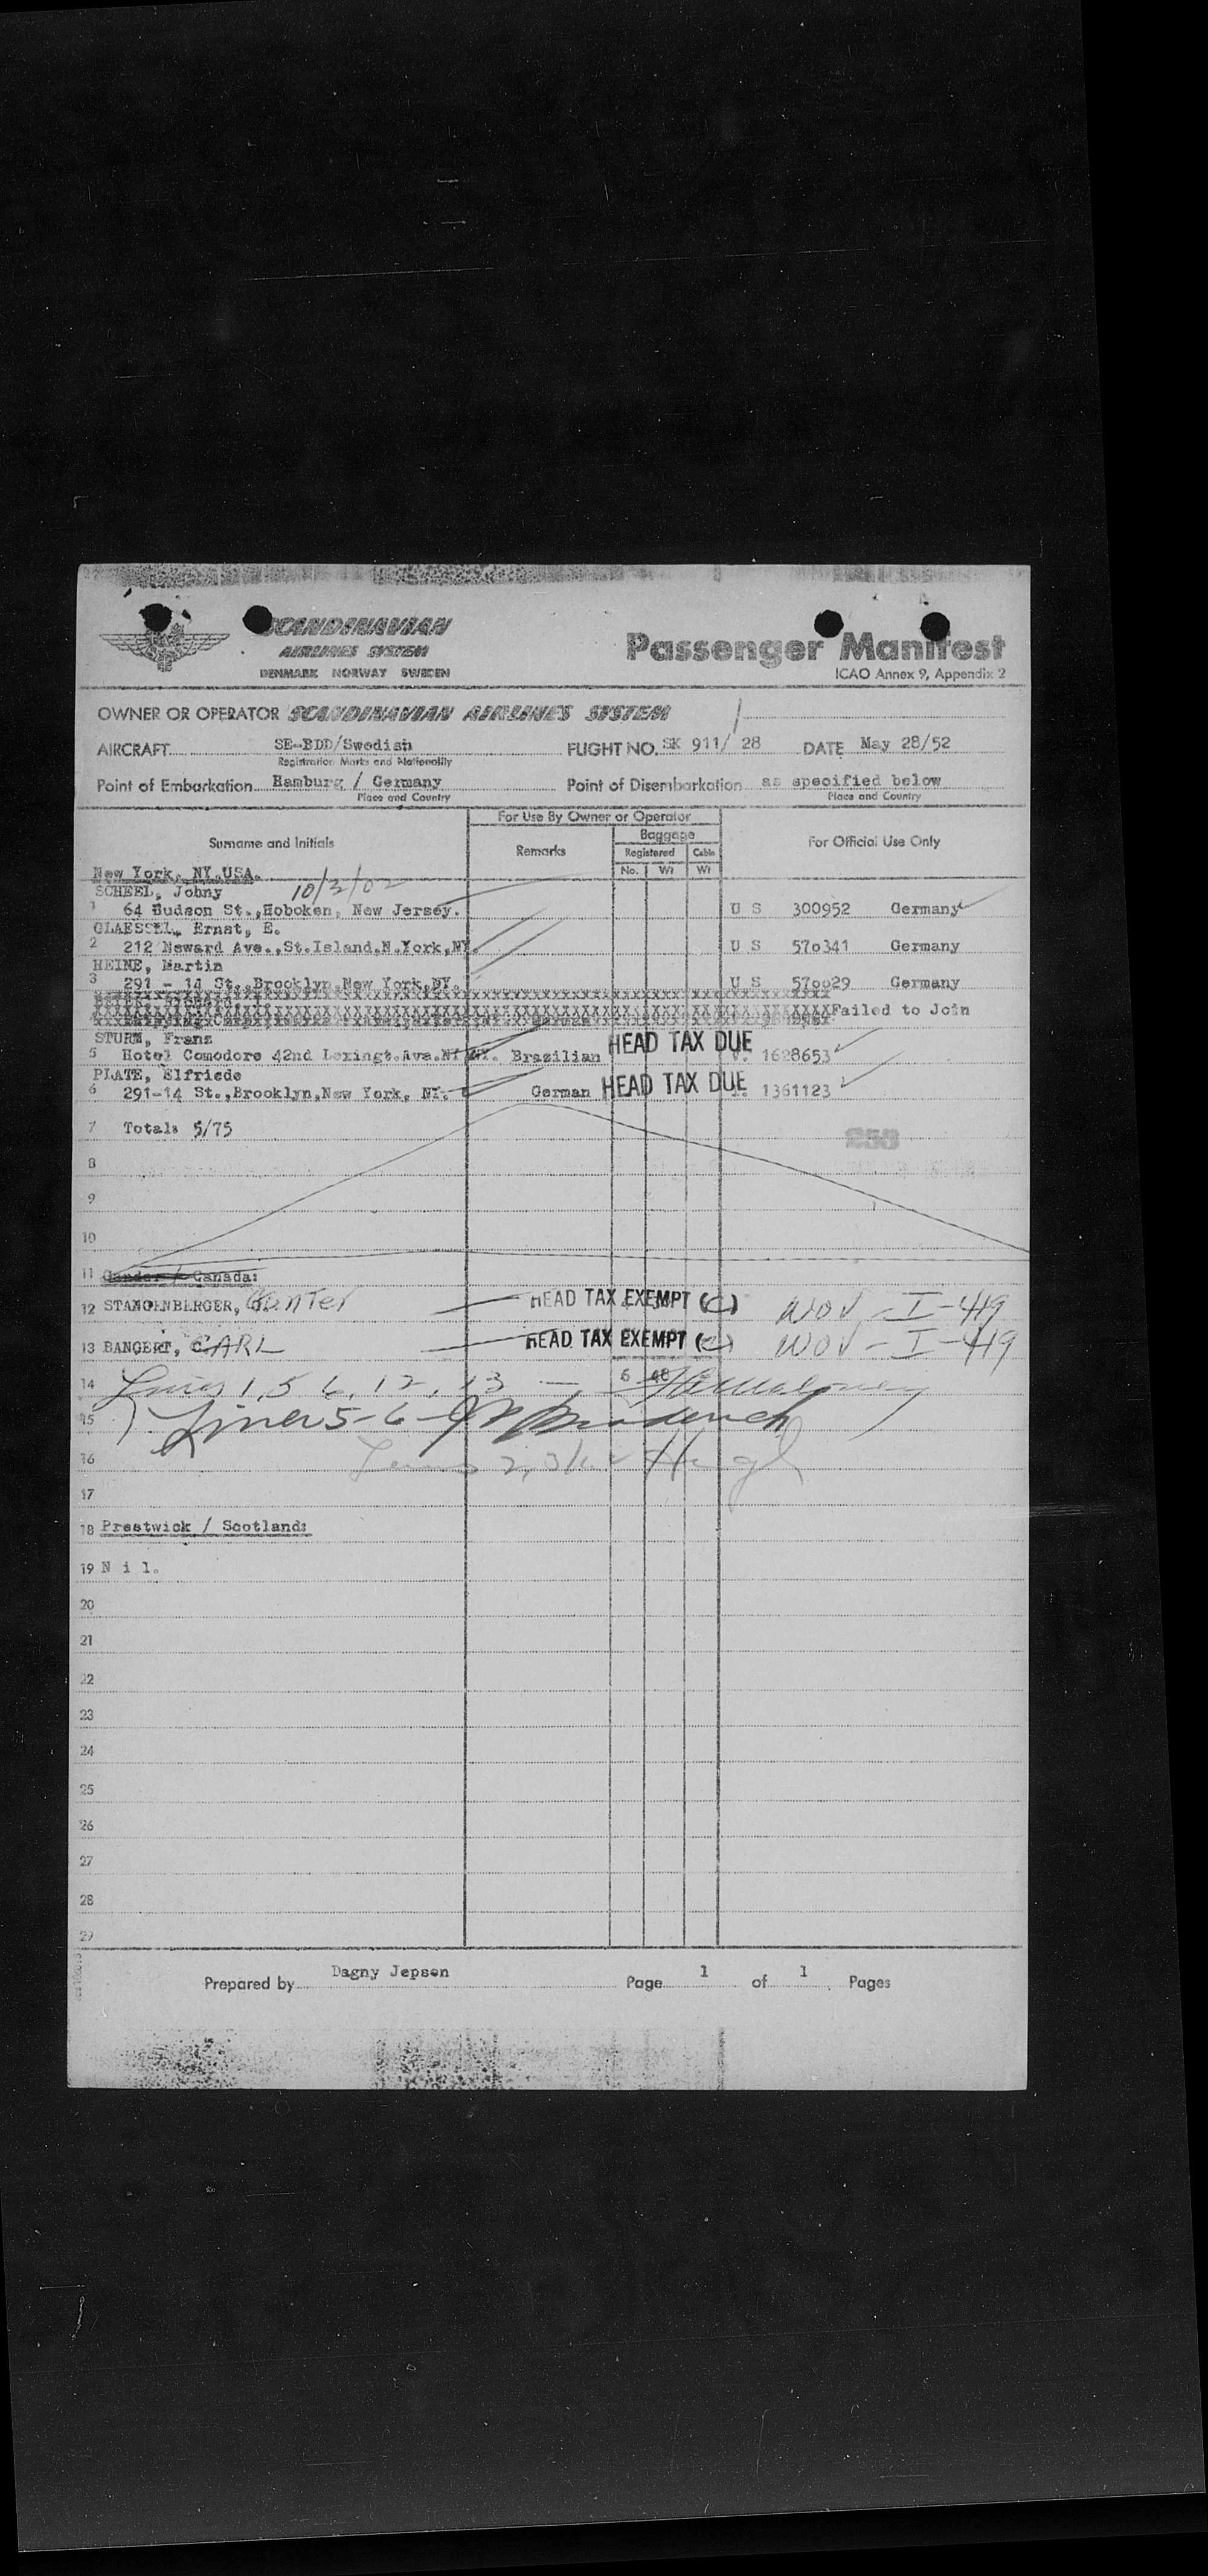 SCANDINAVIAN
AIRLINES SYSTEM
DENMARK NORWAY SWEDEN
Passenger Manifest
ICAO Annex 9, Appendix 2
OWNER OR OPERATOR SCANDINAVIAN AIRLINES SYSTEM
AIRCRAFT SE-BDD/Swedish FLIGHT NO. SK 911/ 28 DATE May 28/52
Registration Marks and Nationality
Point of Embarkation Hamburg / Germany Point of Disembarkation as specified below
Place and Country Place and Country
For Use By Owner or Operator
Baggage
Surname and Initials Remarks Registered Cabin For Official Use Only
No. Wt Wt
New York, NY.USA.
SCHEEL, Johny 10/3/02
1 64 Hudson St.,Hoboken, New Jersey. U S 300952 Germany
GLAESSEL, Ernst, E.
2 212 Neward Ave.,St.Island,N.York,NY. U S 570341 Germany
HEINE, Martin
3 291 - 14 St.,Brooklyn,New York,NY. U S 570029 Germany
Failed to Join
STURM, Franz
5 Hotel Comodore 42nd Lexingt.Ave.NY NY. Brazilian HEAD TAX DUE V. 1628653
PLATE, Elfriede
6 291-14 St.,Brooklyn,New York, NY. German HEAD TAX DUE 1361123
7 Total: 5/75
258
8
9
10
11 Gander / Canada:
12 STANGENBERGER, Gunter HEAD TAX EXEMPT (C) WOV - I-419
13 BANGERT, C. CARL HEAD TAX EXEMPT (C) WOV - I-419
6 48
14 Lines 1, 5 6, 12, 13 —
15 Lines 5-6
16 Lines 2, 3
17
18 Prestwick / Scotland:
19 N i l.
20
21
22
23
24
25
26
27
28
29
Prepared by Dagny Jepsen Page 1 of 1 Pages